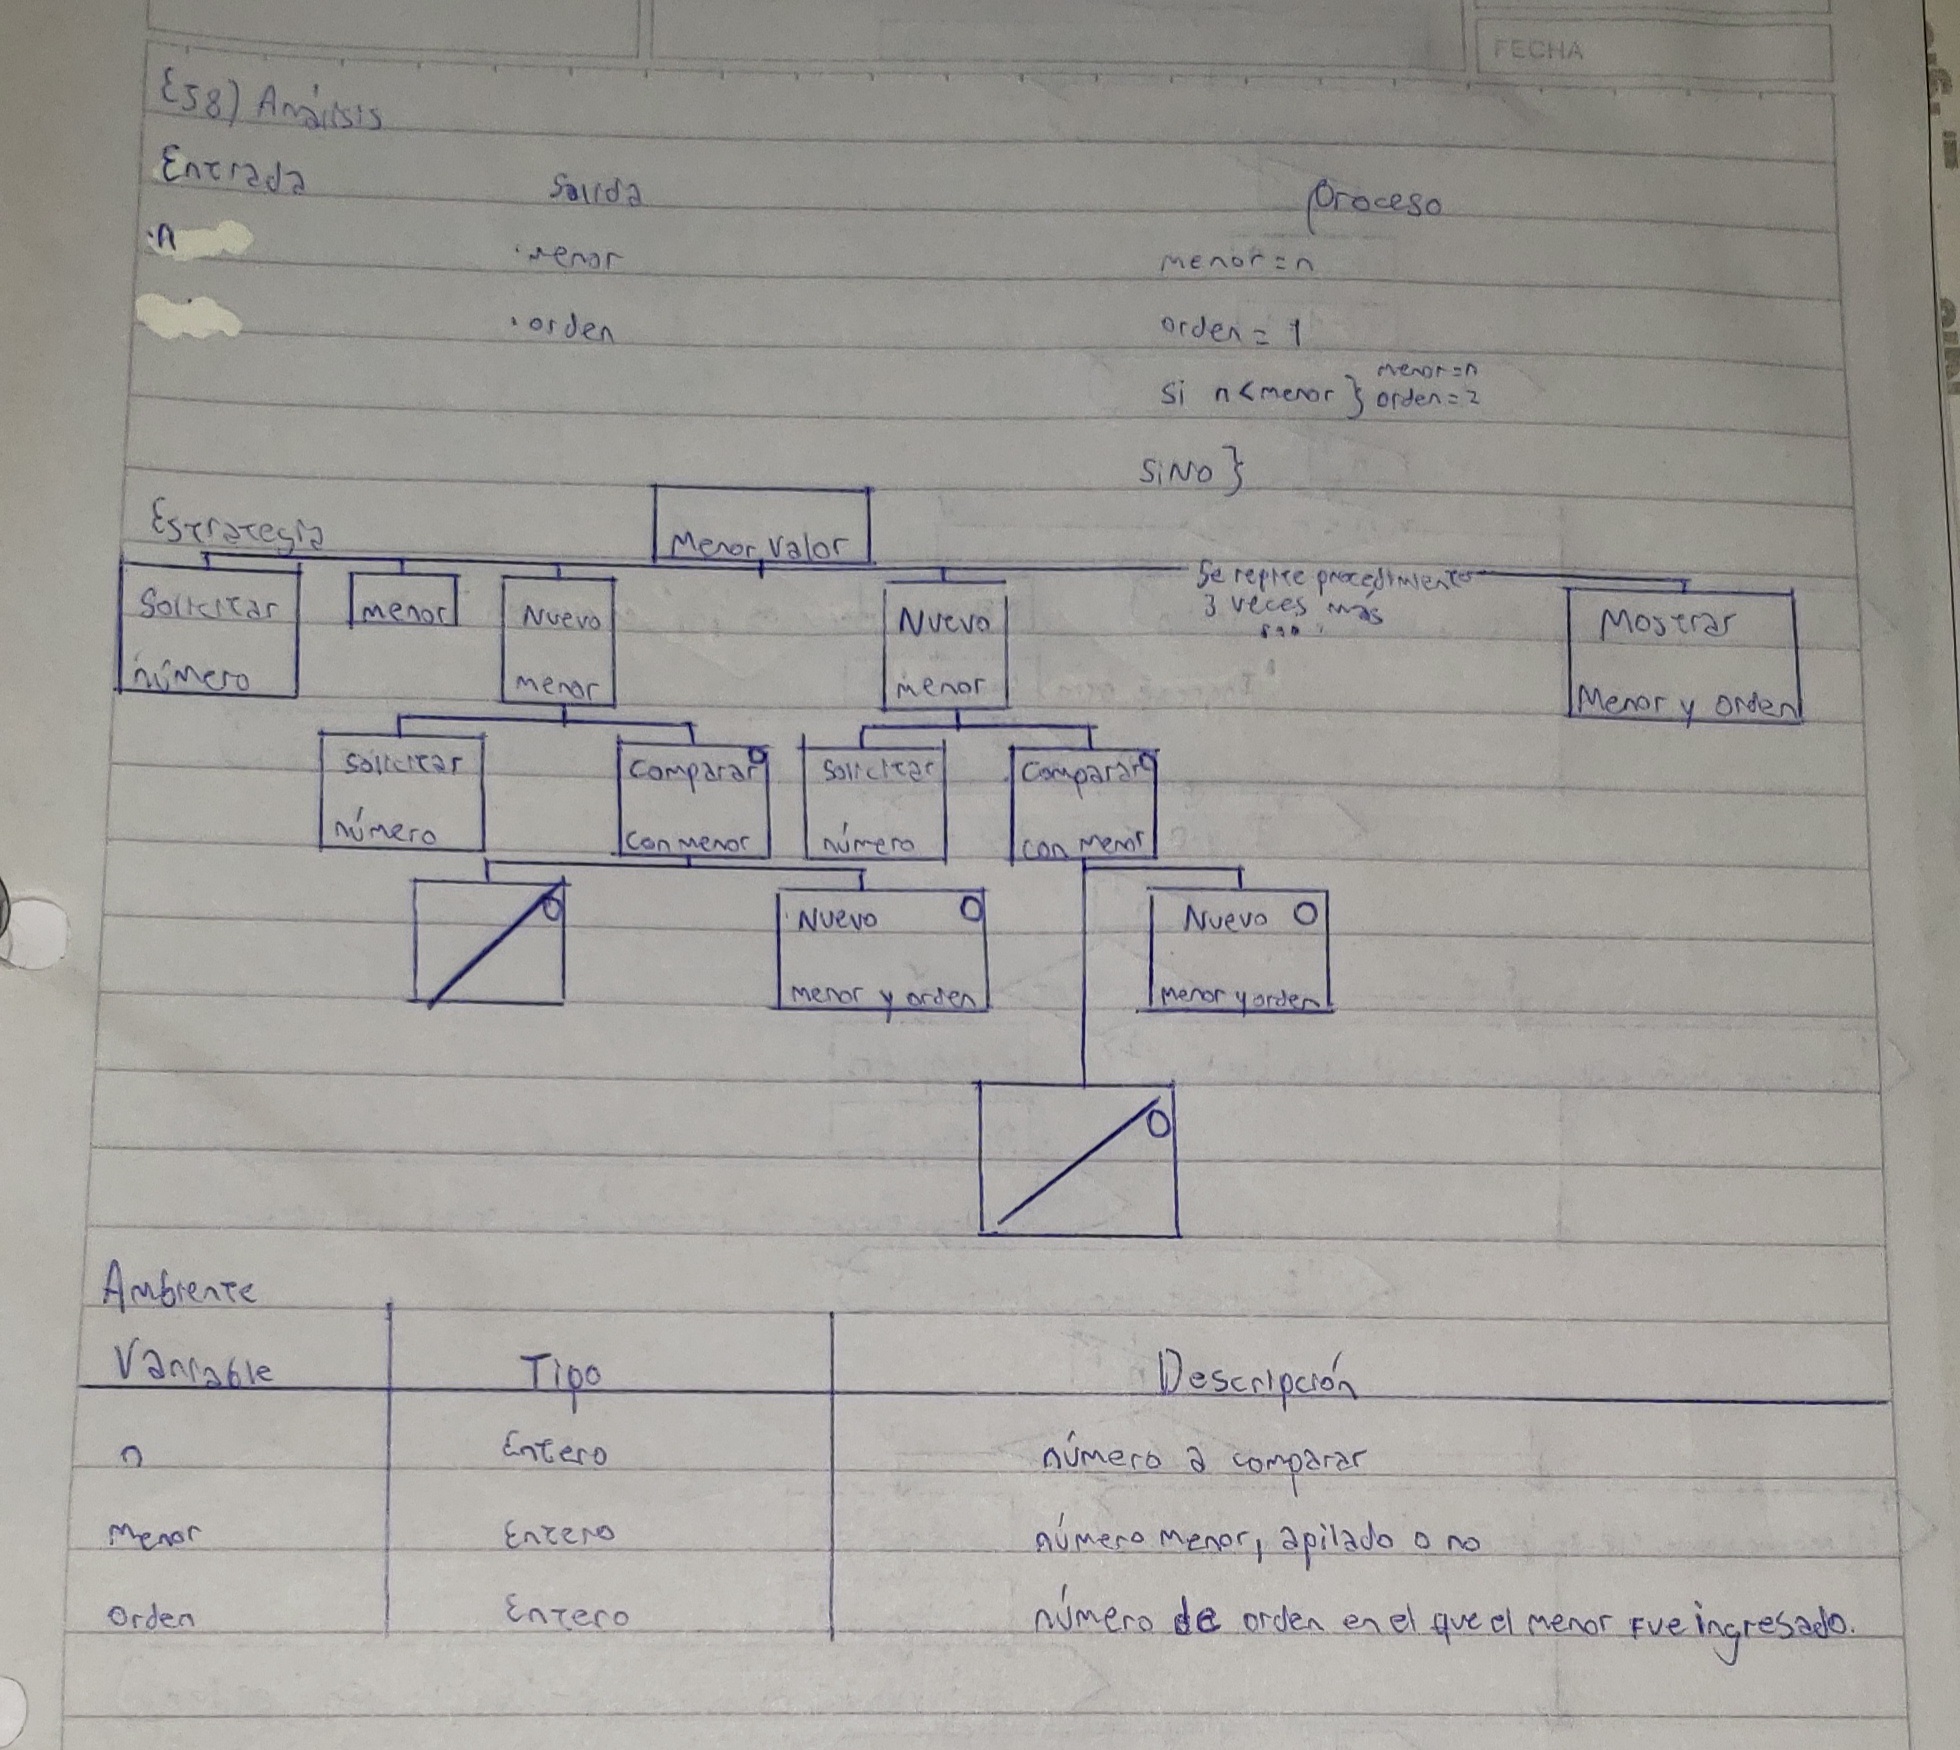 FECHA
E58) Análisis
Entrada Salida Proceso
·n ·menor menor=n
·orden orden = 1
menor=n
si n<menor } orden=2
SINO }
Estrategia
Menor Valor
Se repite procedimiento
3 veces más
Solicitar
número
menor
Nuevo
menor
Nuevo
menor
Mostrar
Menor y orden
Solicitar
número
Comparar
con menor
Solicitar
número
Comparar
con menor
Nuevo
menor y orden
Nuevo
menor y orden
Ambiente
Variable Tipo Descripción
n Entero número a comparar
Menor Entero número menor, apilado o no
Orden Entero número de orden en el que el menor fue ingresado.